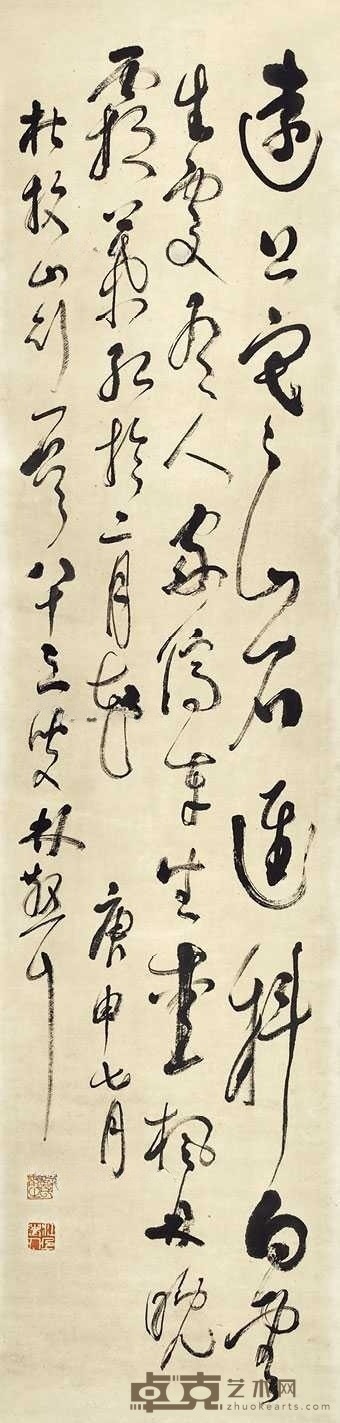 遠上寒山石逕斜白雲
生處有人家停車坐愛楓林晚
霜葉紅於二月花 庚申七月
杜牧山行一首 八十三叟林散耳
卓克艺术网
zhuokearts.com